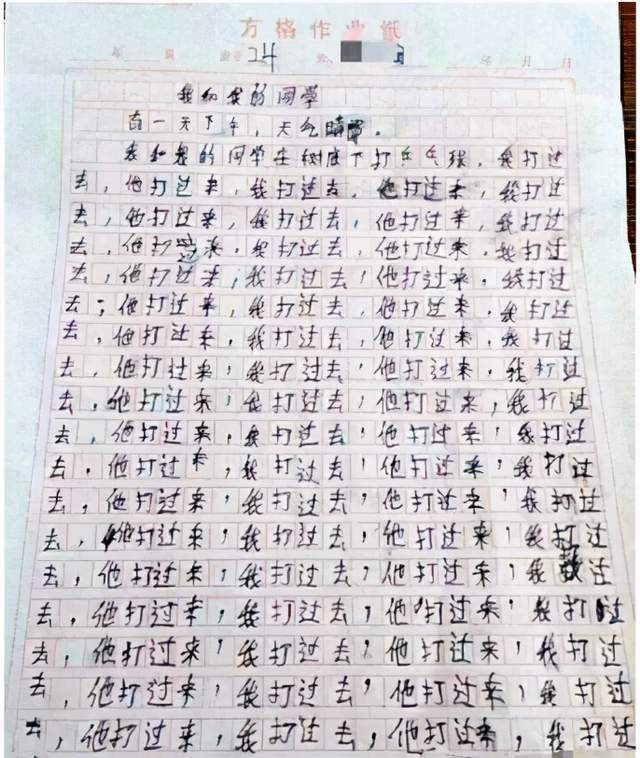 方格作业纸
年 级 24 年 月 日
我和我的同学
有一天下午，天气晴。
我和我的同学在树底下打乒乓球，我打过
去，他打过来，我打过去，他打过来，我打过
去，他打过来，我打过去，他打过来，我打过
去，他打过来，我打过去，他打过来，我打过
去，他打过来，我打过去，他打过来，我打过
去，他打过来，我打过去，他打过来，我打过
去，他打过来，我打过去，他打过来，我打过
去，他打过来，我打过去，他打过来，我打过
去，他打过来，我打过去，他打过来，我打过
去，他打过来，我打过去，他打过来，我打过
去，他打过来，我打过去，他打过来，我打过
去，他打过来，我打过去，他打过来，我打过
去，他打过来，我打过去，他打过来，我打过
去，他打过来，我打过去，他打过来，我过
去，他打过来，我打过去，他打过来，我打过
去，他打过来，我打过去，他打过来，我打过
去，他打过来，我打过去，他打过来，我打过
去，他打过来，我打过去，他打过来，我打过